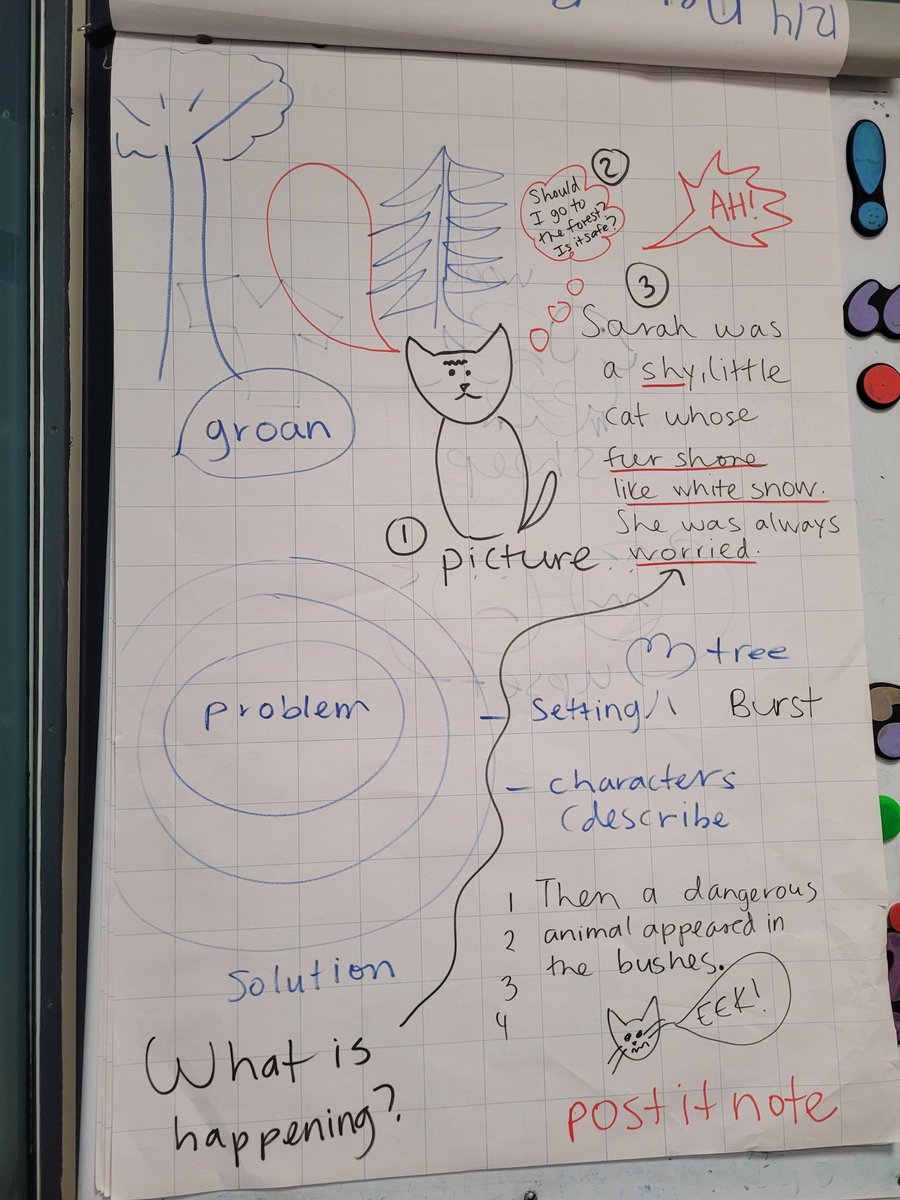 12/4
2
Should
I go to
the forest?
Is it safe?
AH!
3
Sarah was
a shy, little
cat whose
fur shone
like white snow.
She was always
worried.
groan
1
picture
problem
tree
- Setting
Burst
- characters
(describe
Solution
1 Then a dangerous
2 animal appeared in
3 the bushes.
4
EEK!
What is
happening?
post it note